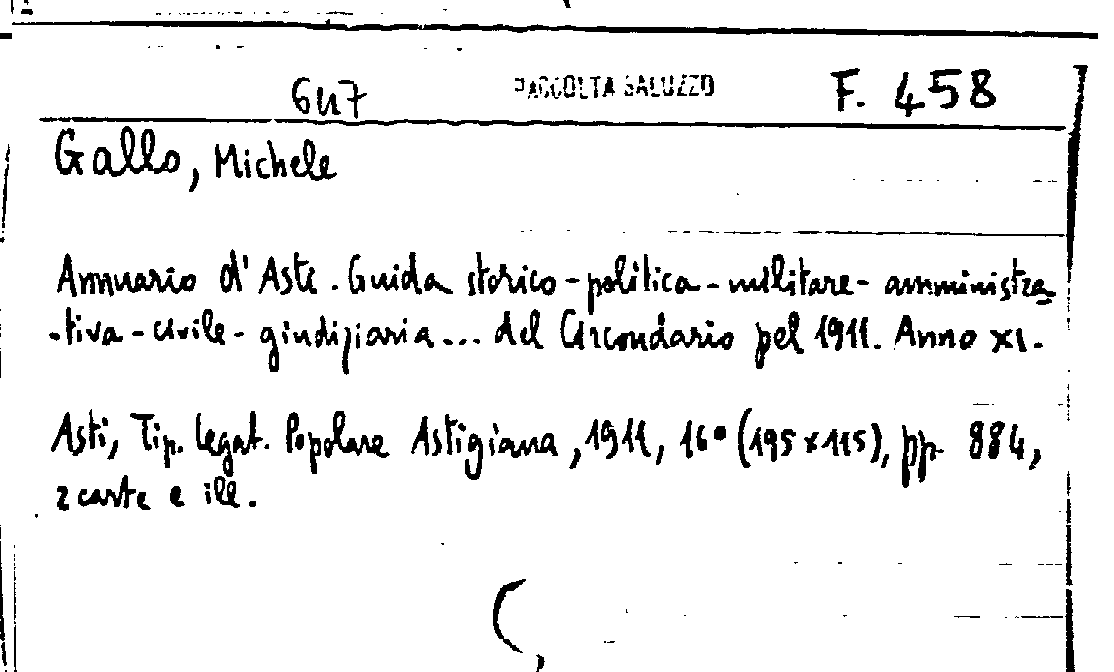 647 RACCOLTA SALUZZO F. 458
Gallo, Michele
Annuario d'Asti. Guida storico-politica-militare-amministra
-tiva-civile-giudiziaria... del Circondario pel 1911. Anno XI.
Asti, Tip. Legat. Popolare Astigiana, 1911, 16° (195x115), pp. 884,
2 carte e ill.